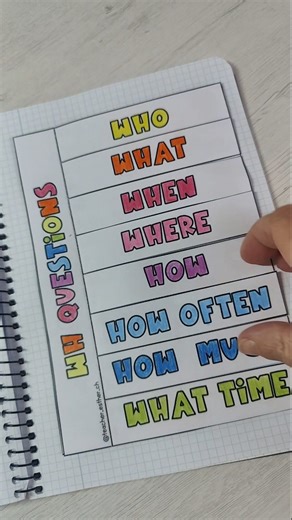 WH QUESTIONS
WHO
WHAT
WHEN
WHERE
HOW
HOW OFTEN
HOW MU
WHAT TIME
@teacher.esther.ch